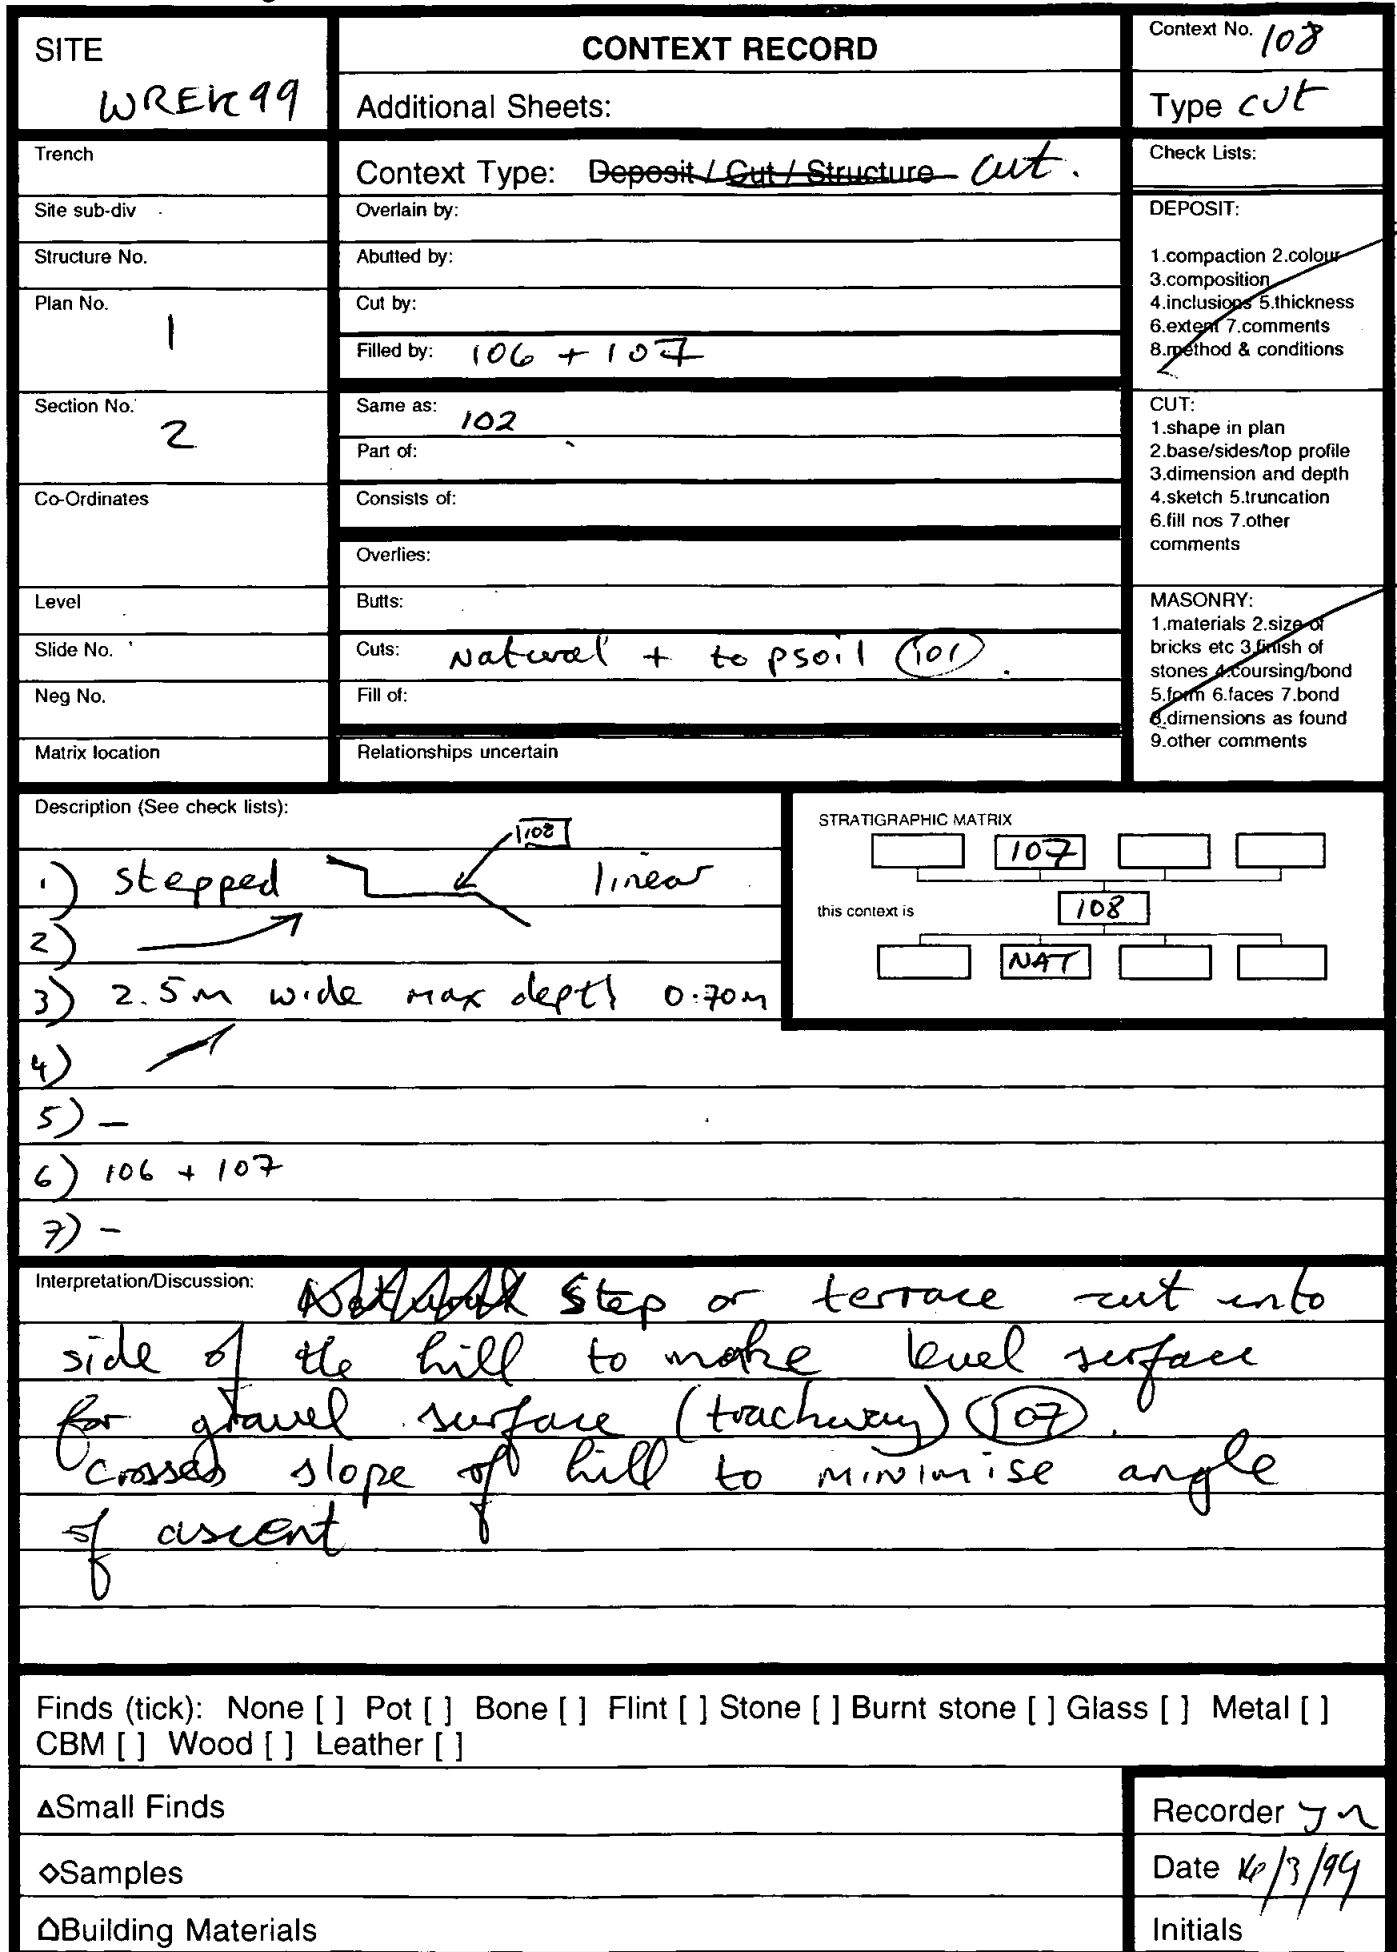 SITE
WREK99
CONTEXT RECORD
Additional Sheets:
Context No. 108
Type cut
Trench
Site sub-div
Structure No.
Plan No.
1
Section No.
2
Co-Ordinates
Level
Slide No.
Neg No.
Matrix location
Context Type: Deposit / Cut / Structure cut.
Overlain by:
Abutted by:
Cut by:
Filled by: 106 + 107
Same as: 102
Part of:
Consists of:
Overlies:
Butts:
Cuts: Natural + topsoil (101).
Fill of:
Relationships uncertain
Check Lists:
DEPOSIT:
1.compaction 2.colour
3.composition
4.inclusions 5.thickness
6.extent 7.comments
8.method & conditions
CUT:
1.shape in plan
2.base/sides/top profile
3.dimension and depth
4.sketch 5.truncation
6.fill nos 7.other
comments
MASONRY:
1.materials 2.size of
bricks etc 3.finish of
stones 4.coursing/bond
5.form 6.faces 7.bond
8.dimensions as found
9.other comments
Description (See check lists):
108
1) stepped linear
2)
3) 2.5m wide max depth 0.70m
4)
5) –
6) 106 + 107
7) -
STRATIGRAPHIC MATRIX
107
this context is 108
NAT
Interpretation/Discussion: Natural Step or terrace cut into
side of the hill to make level surface
for gravel surface (trackway) (107).
Crosses slope of hill to minimise angle
of ascent
Finds (tick): None [ ] Pot [ ] Bone [ ] Flint [ ] Stone [ ] Burnt stone [ ] Glass [ ] Metal [ ]
CBM [ ] Wood [ ] Leather [ ]
Small Finds
Samples
Building Materials
Recorder
Date 16/3/99
Initials